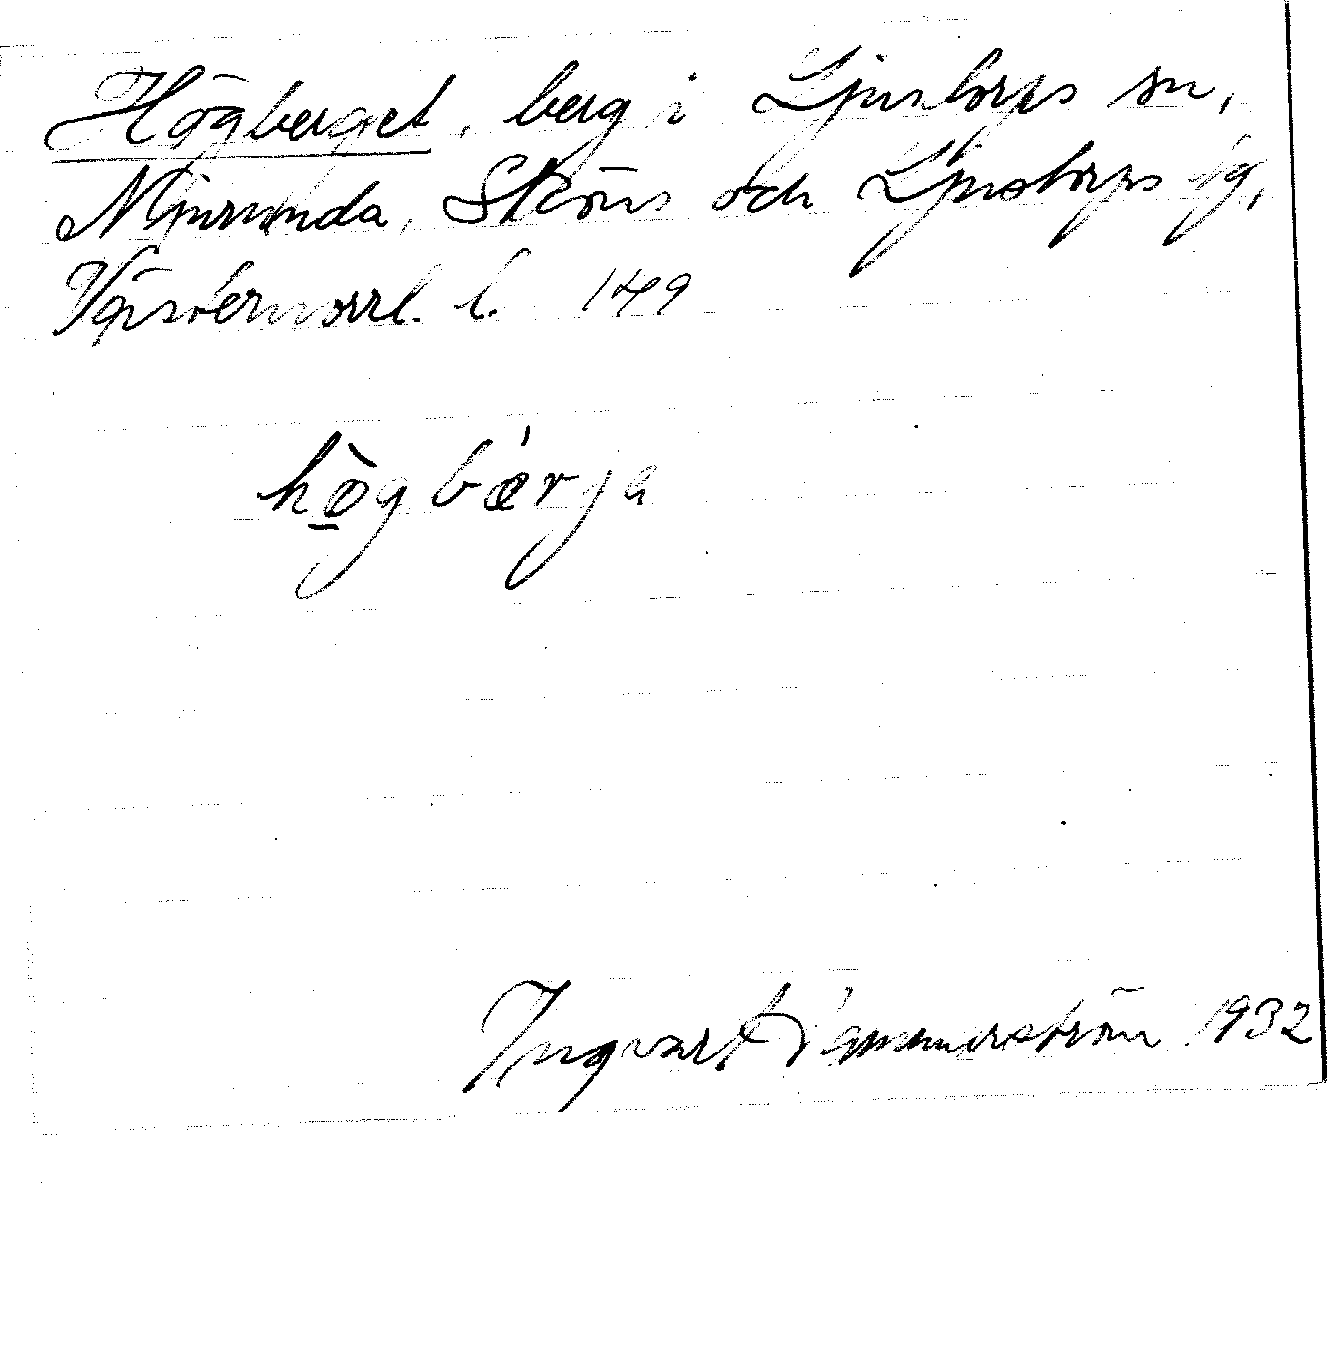 Högberget, berg i Ljustorps sn,
Njurunda, Sköns och Ljustorps tg,
Västernorrl. l. 149
hògbǽrja
Ingvar Hammarström 1932